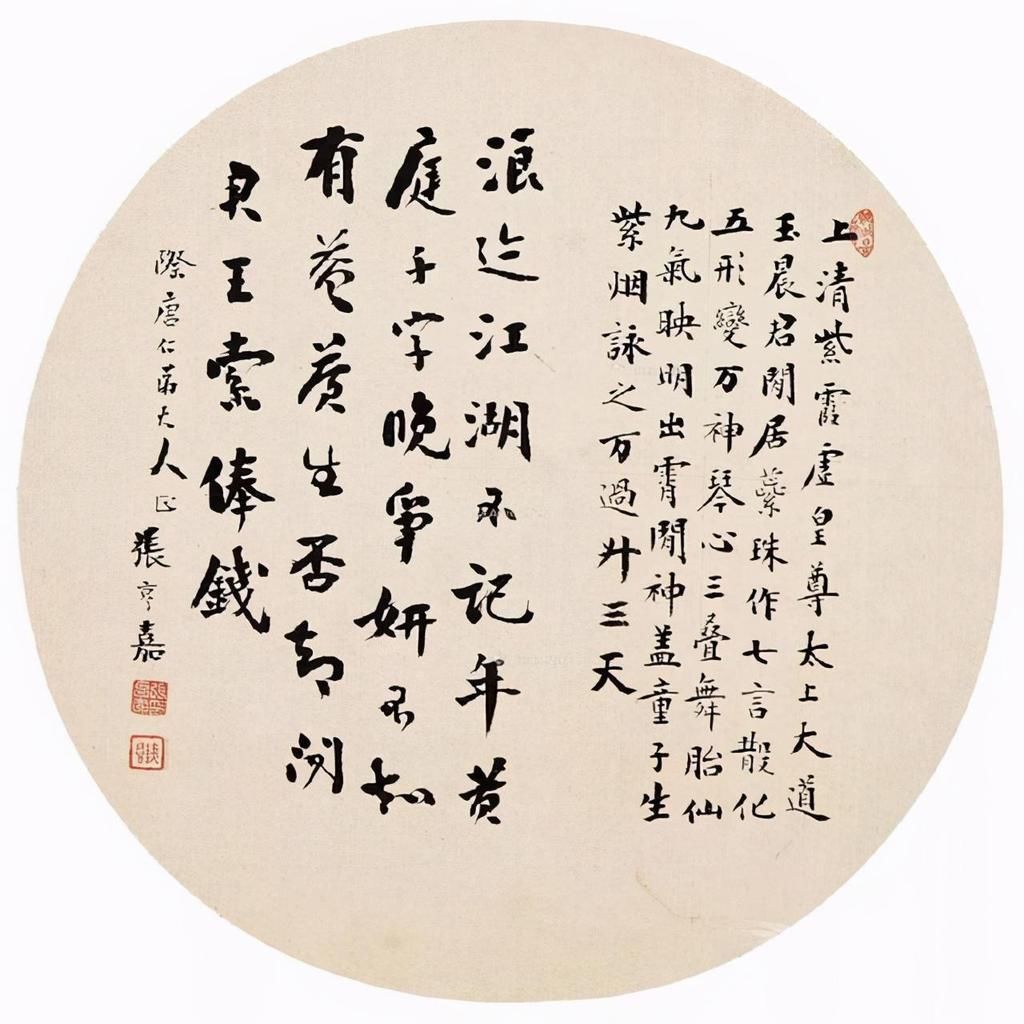 上清紫霞虛皇尊太上大道
玉晨君閒居蘂珠作七言散化
五形變万神琴心三叠舞胎仙
九氣映明出霄閒神盖童子生
紫烟詠之万過升三天
浪迹江湖不記年黄
庭千字晚爭妍不知
有益養生否却問
君王索俸錢
際唐仁弟大人正
張亨嘉